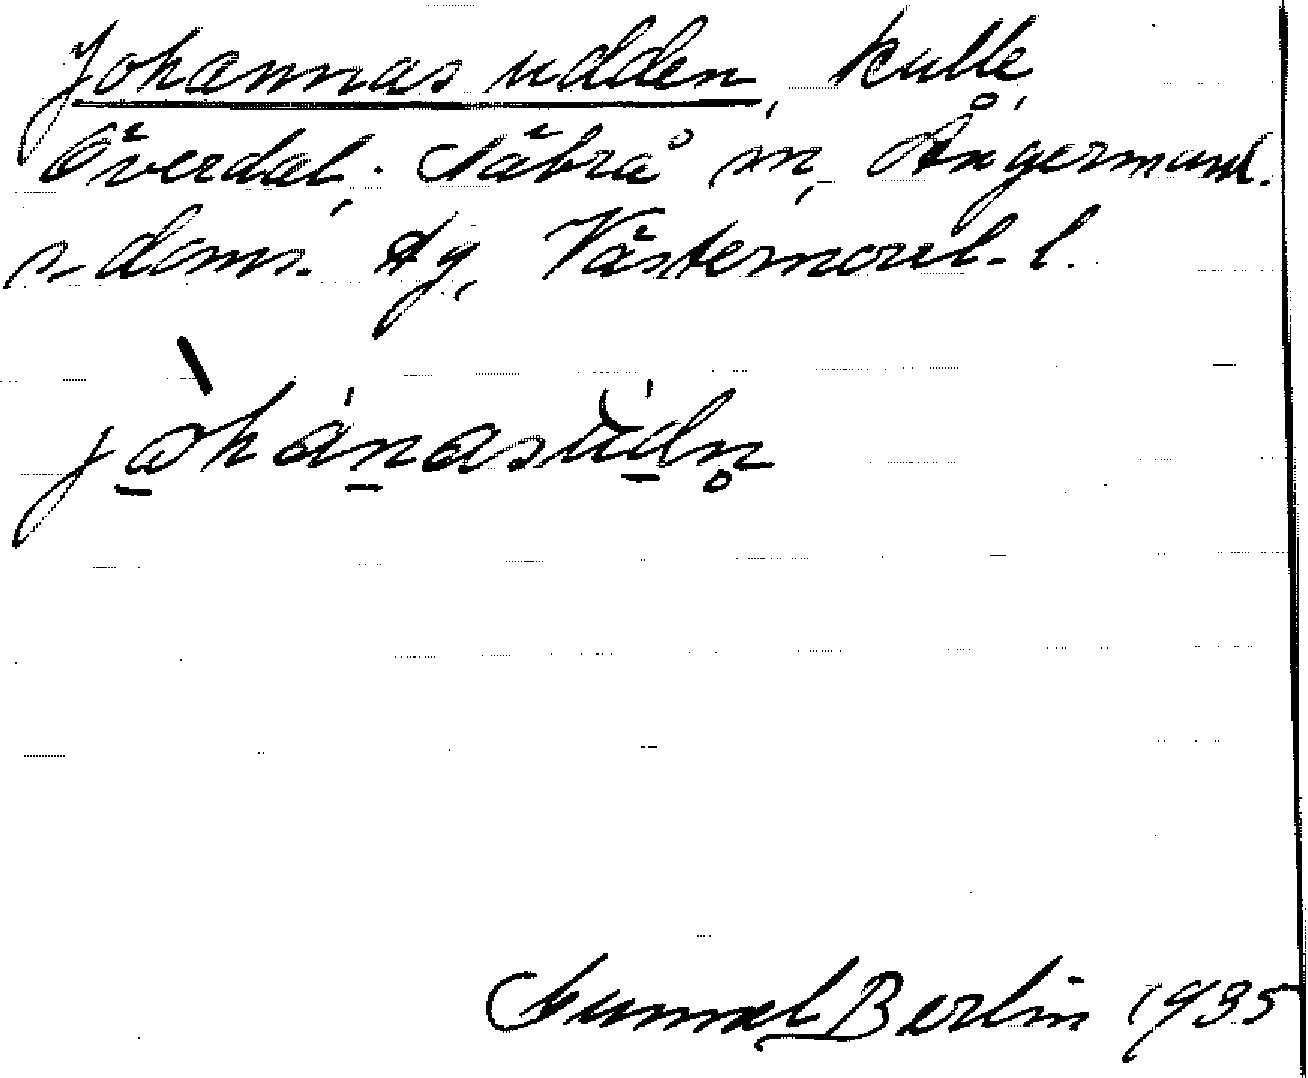 Johannasudden, kulle,
Överdal, Säbrå sn, Ångermanl.
s. doms. tg, Västernorrl. l.
jo̱hánasu̱dn̥
Gunnel Berlin 1935